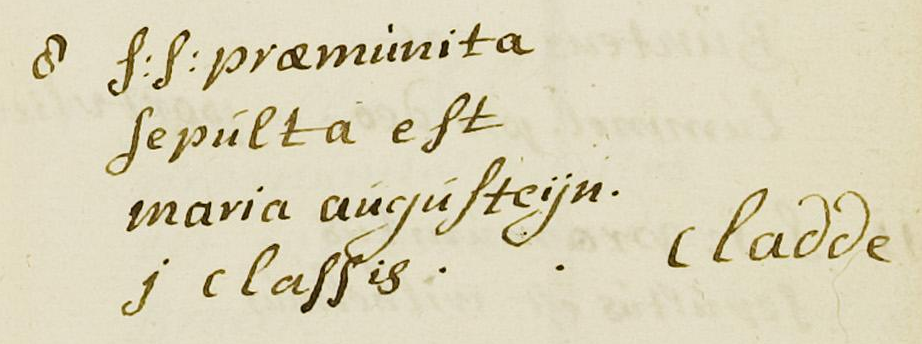 8 s:s: præmunita
sepulta est
maria augusteijn.
j classis. . cladde